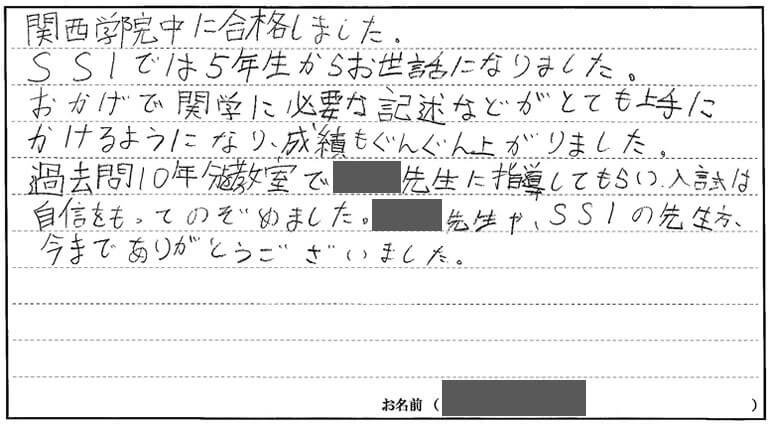 関西学院中に合格しました。
SSIでは5年生からお世話になりました。
おかげで関学に必要な記述などがとても上手に
かけるようになり、成績もぐんぐん上がりました。
過去問10年分教室で 先生に指導してもらい、入試は
自信をもってのぞめました。 先生や、SSIの先生方、
今までありがとうございました。
お名前 ( )